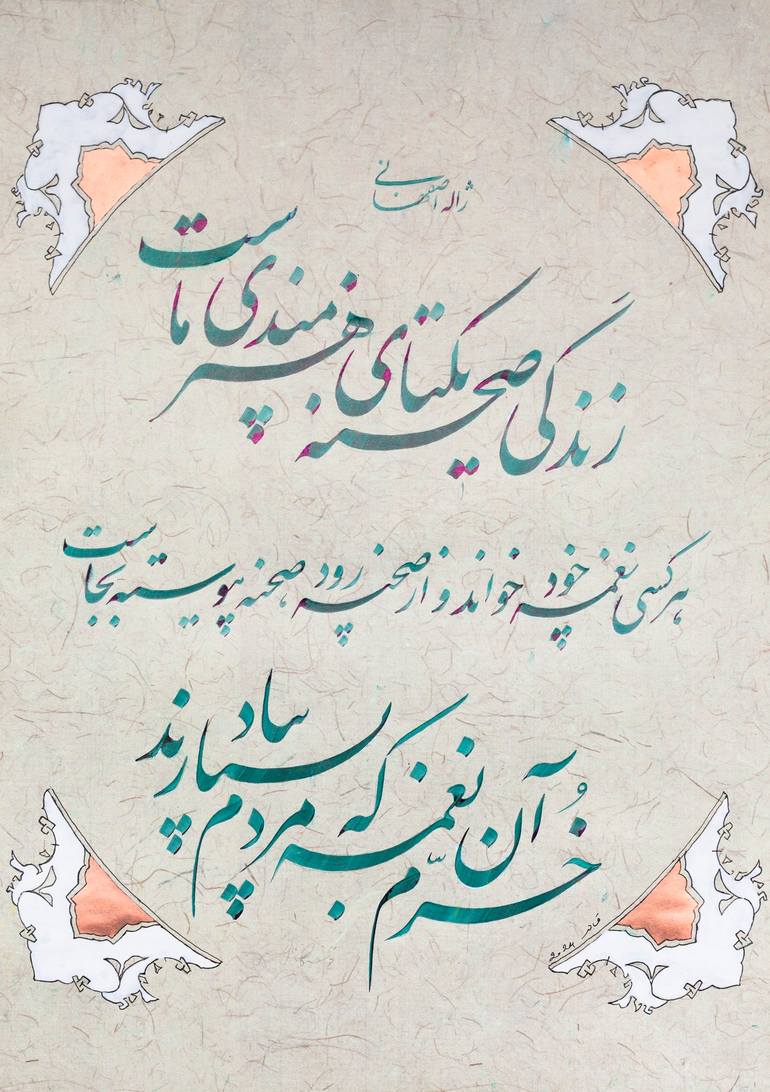 ژاله اصفهانی
زندگی صحنه یکتای هنرمندی ماست
هر کسی نغمه خود خواند و از صحنه رود صحنه پیوسته بجاست
خرّم آن نغمه که مردم بسپارند بیاد